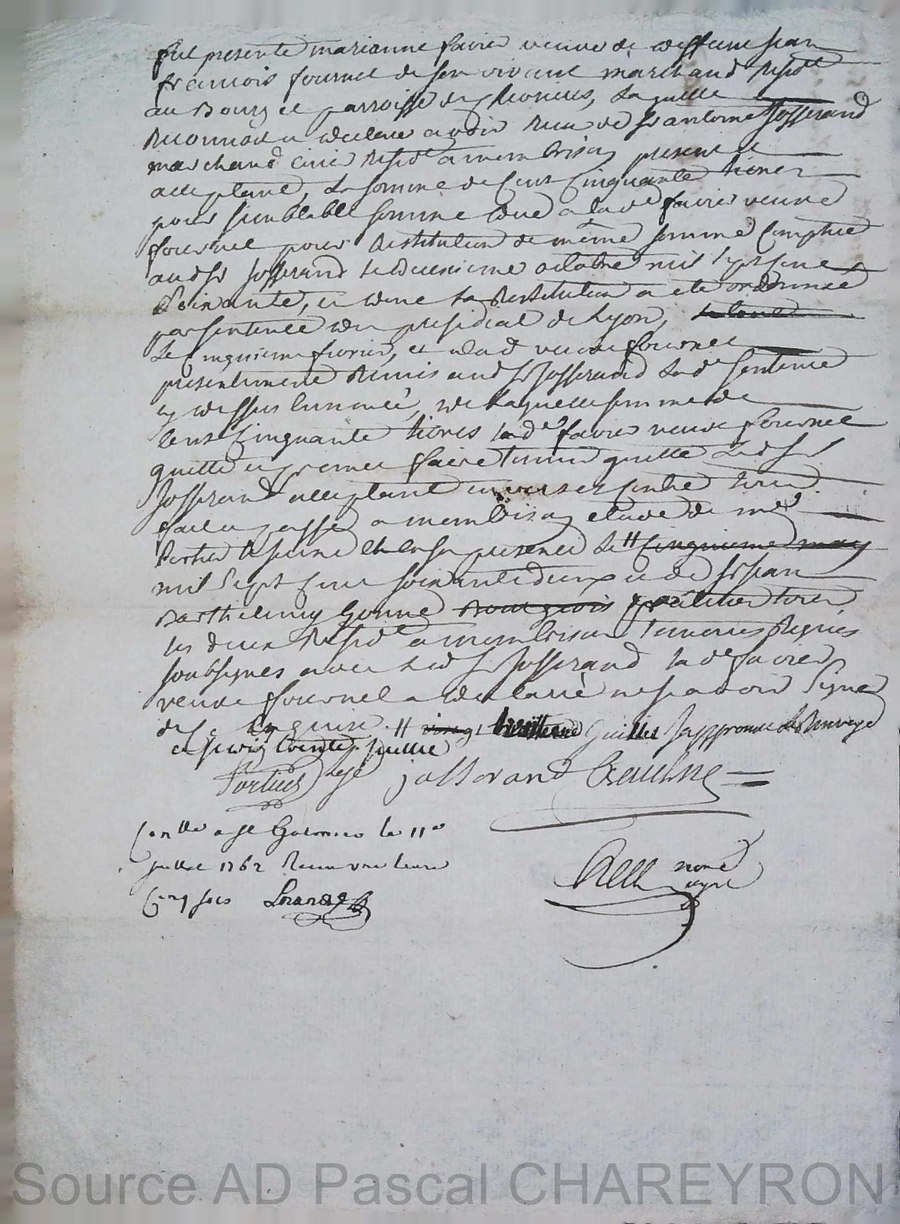 fut presente marianne favier veuve de deffunt jean
francois fournel de son vivant marchand resid.te
au Bourg et parroisse de laquelle
Reconnoit a declaré avoir Recu de Sr antoine Josserand
marchand resid.t a montbrison present et
acceptant, La somme de Cent Cinquante livres
pour semblable somme düe a la d.e favier veuve
fournel pour Restitution de même somme Comptée
aud Sr Josserand le octobre mil sept cent
soixante, et dont La Restitution a eté ordonnée
par sentence du presidial de Lyon,
Le cinquieme fevrier, et lad veuve fournel
presentement Remis aud Sr Josserand Lad.e sentence
cy dessus enoncée, de laquelle somme de
Cent Cinquante livres lad.e favier veuve fournel
quitte et promet faire tenir quitte Led Sr
Josserand acceptant envers et contre tous
fait et passé a montbrison etude de me
le presence le // Cinquieme may
mil sept Cent soixante deux et de Sr jean
Barthelemy Gonne Bourgeois praticien tous
les deux Resid.t a montbrison temoins Requis
soubsignés avec led Sr Josserand la d.e favier
veuve fournel a declaré ne savoir signer
de ce enquise. // juillet japprouve le Renvoye
juillet
josserand
Con.lle a St Galmier le 11e
juillet 1762 Recu
Cinq sols